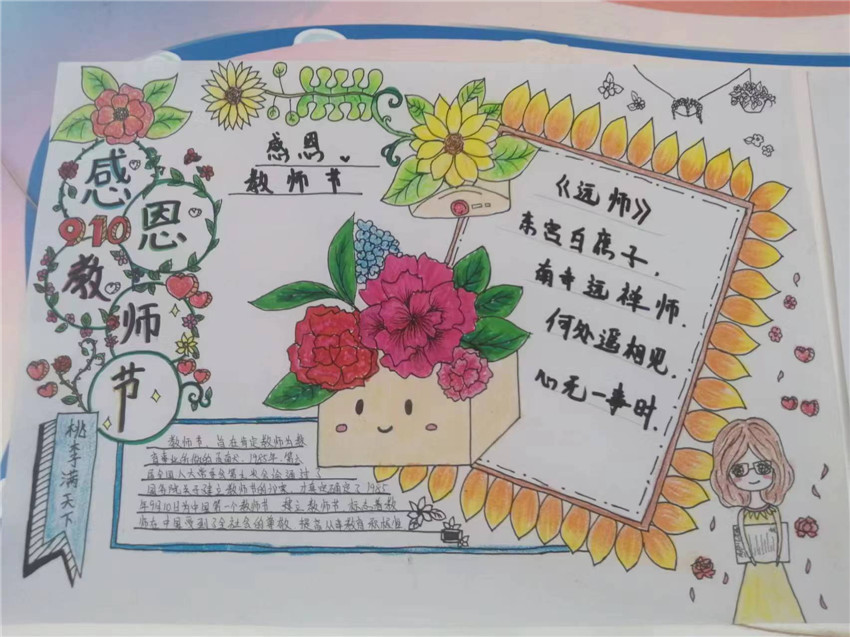 感
恩
910
教
师
节
感恩
教师节
《远师》
东宫白庶子，
南寺远禅师.
何处遥相见，
心无一事时.
桃李满天下
教师节，旨在肯定教师为教
育事业所做的贡献。1985年，第六
届全国人大常委会第九次会议通过了
国务院关于建立教师节的议案，
1985
年9月10日为中国第一个教师节 建立教师节，标志着教
师在中国受到了全社会的尊敬